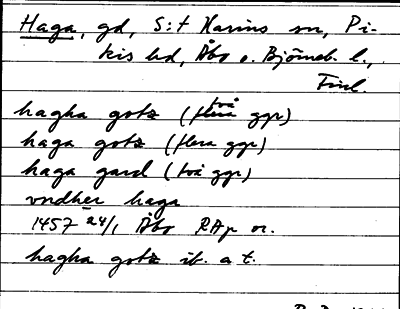 Haga, gd, S:t Karins sn, Pi-
kis hd, Åbo o. Björneb. l.,
Finl.
hagha gotz (två ggr)
haga gotz (flera ggr)
haga gard (två ggr)
vndher haga
1457 24/1 Åbo RAp or.
hagha gotz ib. a t.